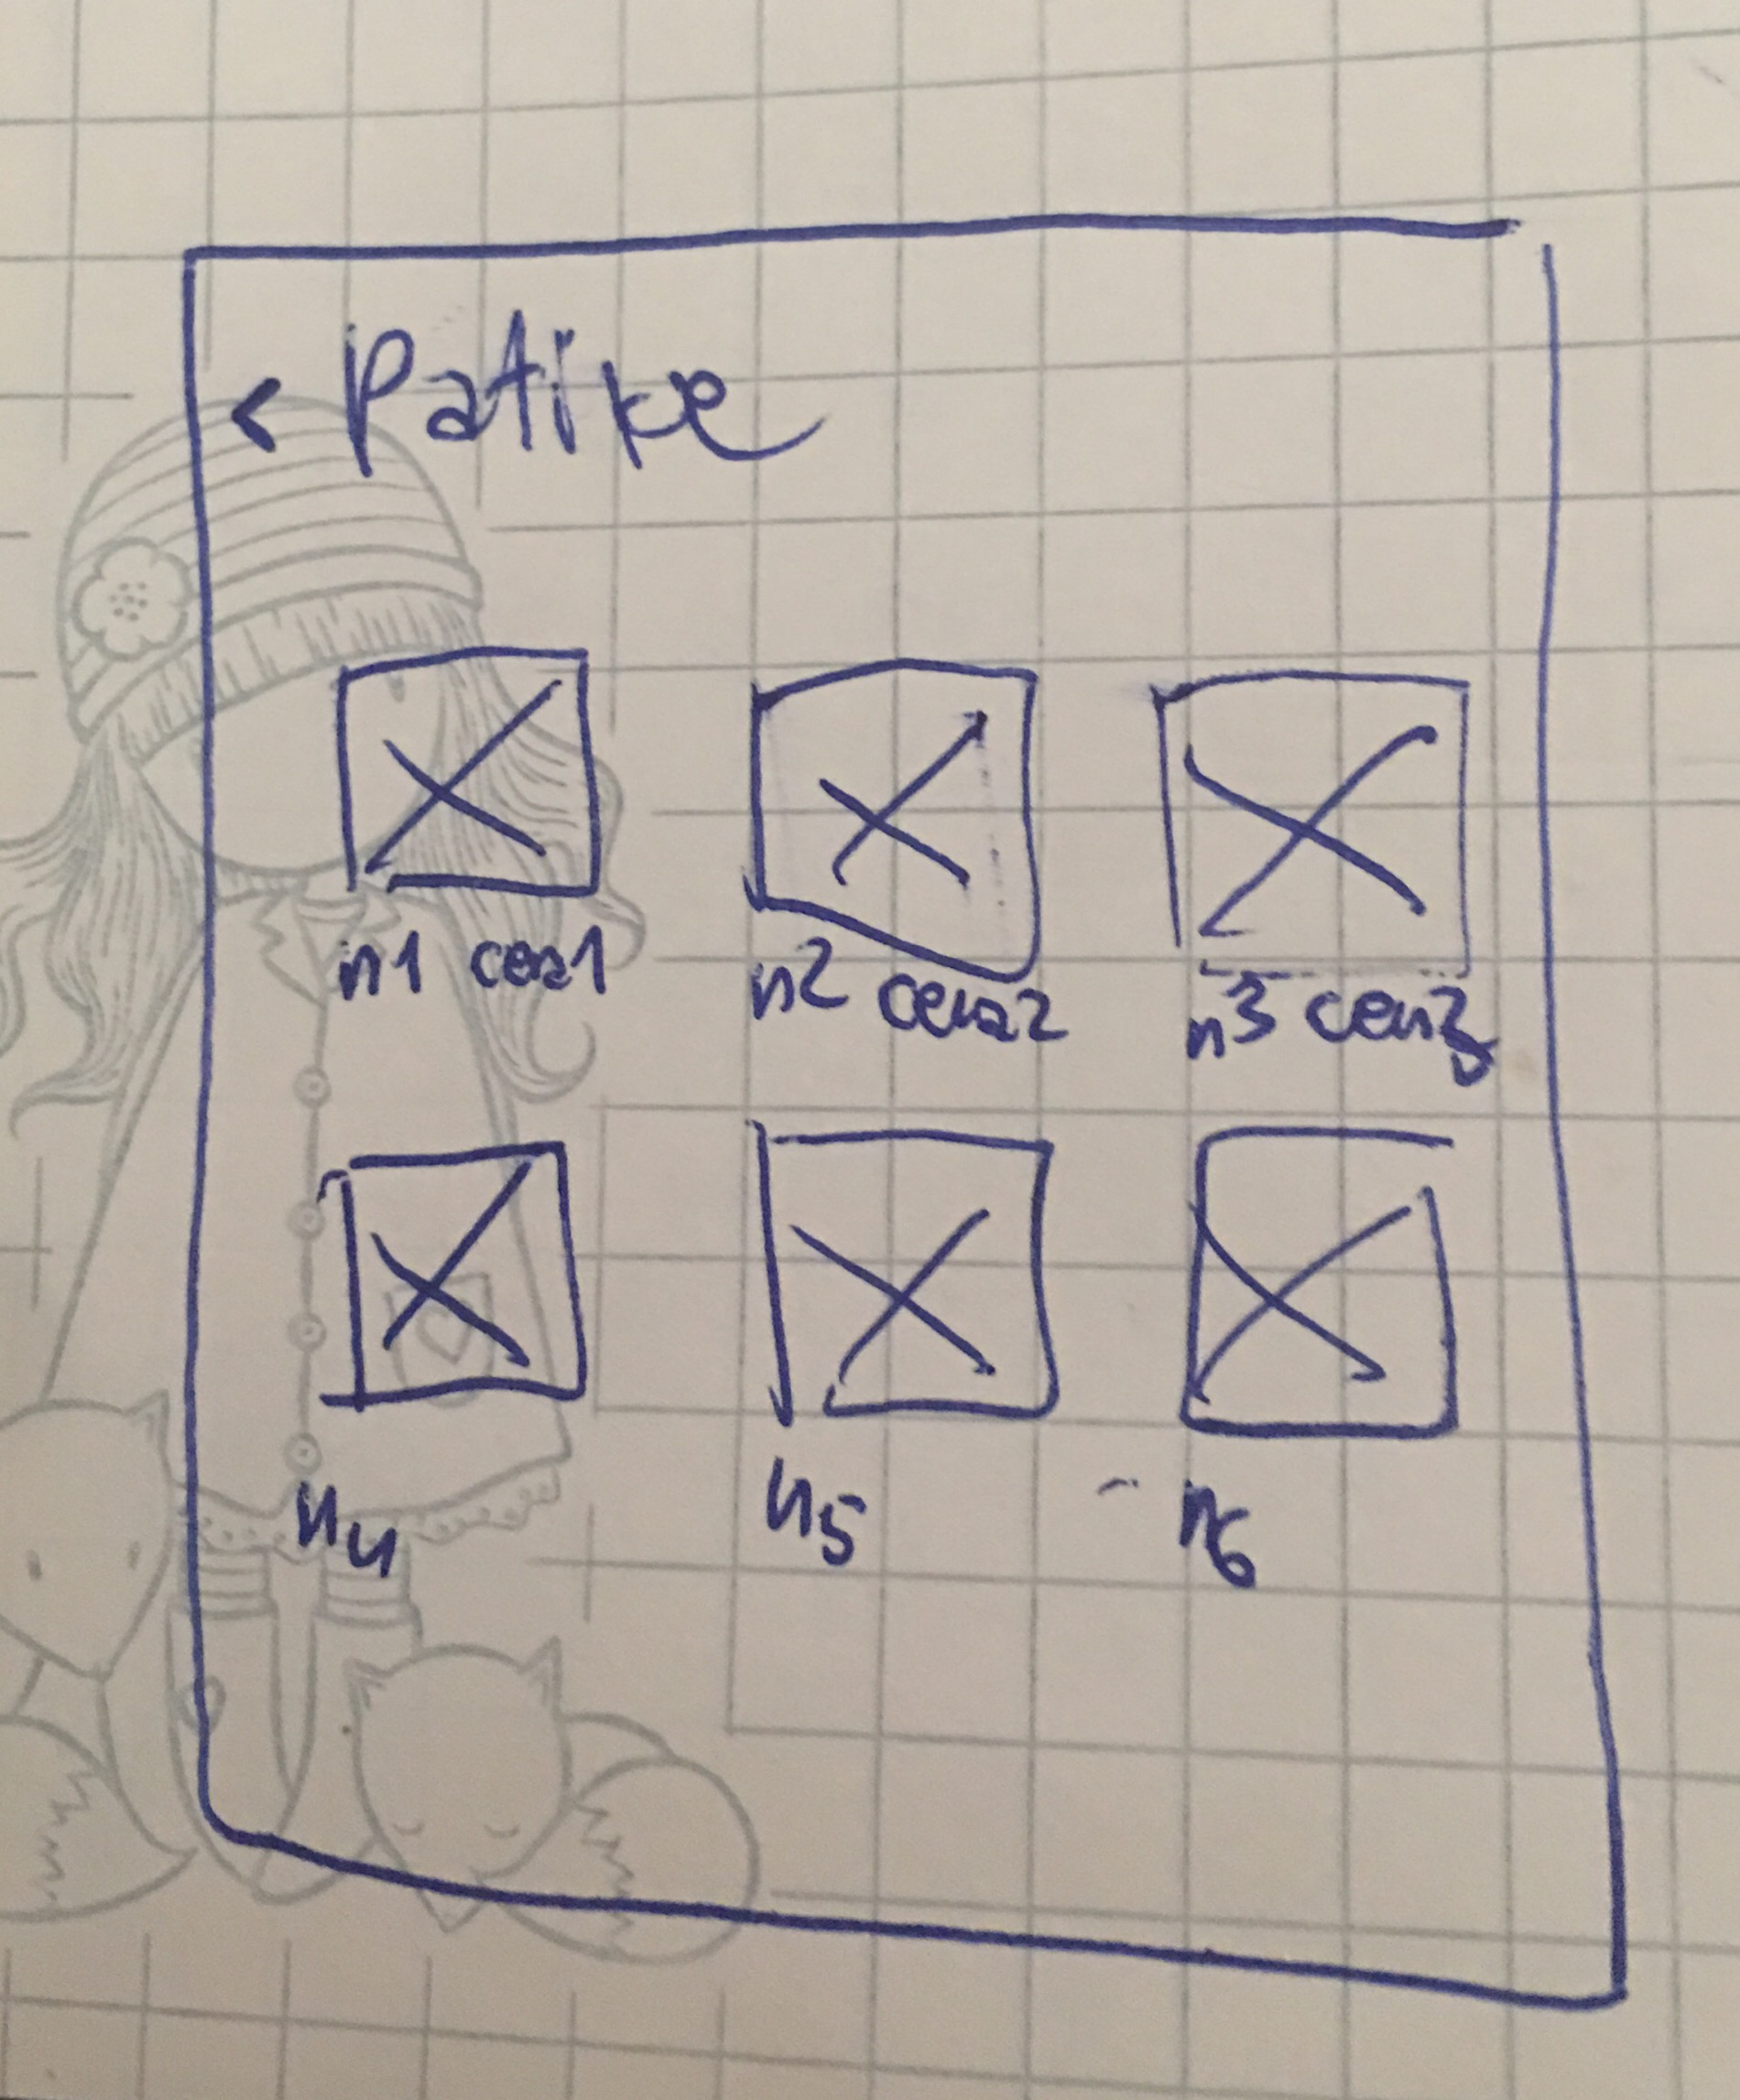 < Patike
n1 cena1 n2 cena2 n3 cena3
n4 n5 n6